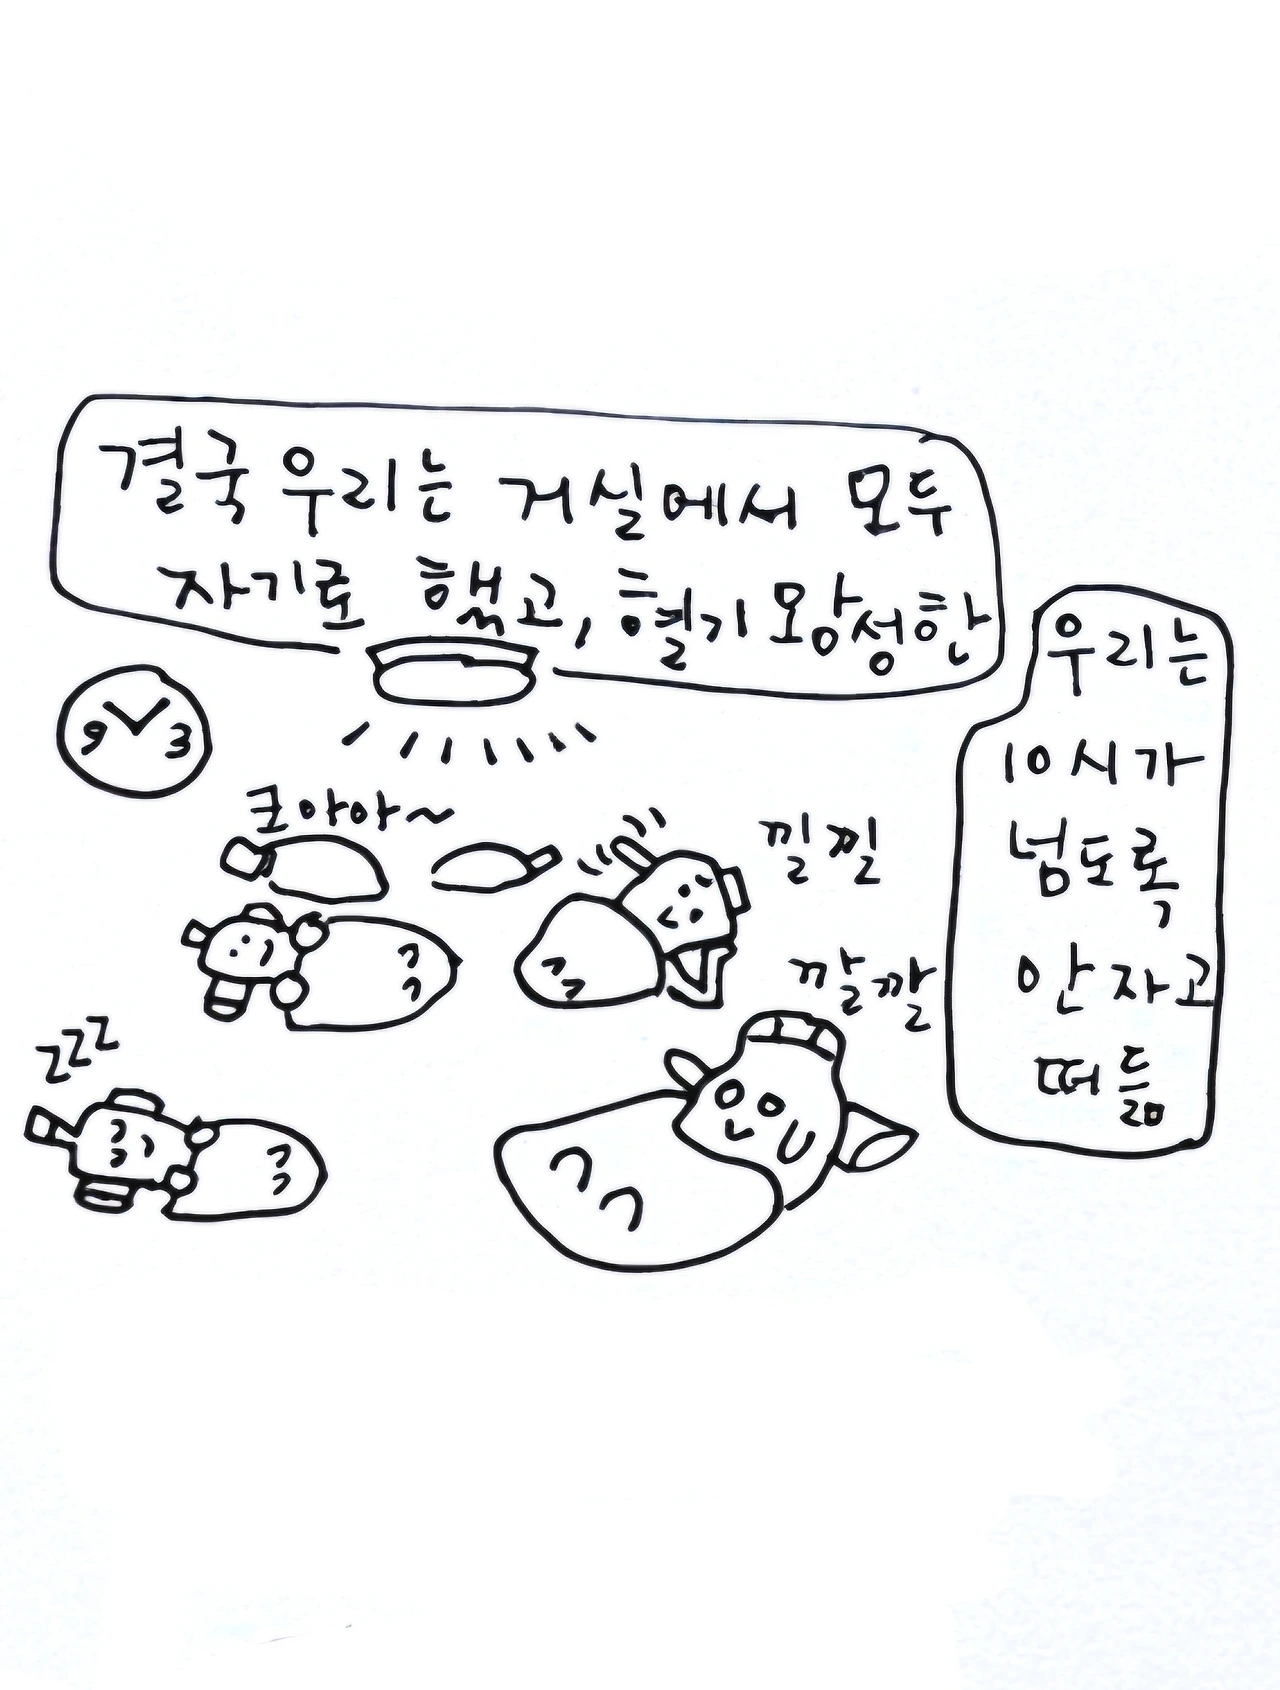 결국 우리는 거실에서 모두
자기로 했고, 혈기 왕성한
우리는
10시가
넘도록
안 자고
떠듦
9 3
크아아~
낄낄
깔깔
zzz